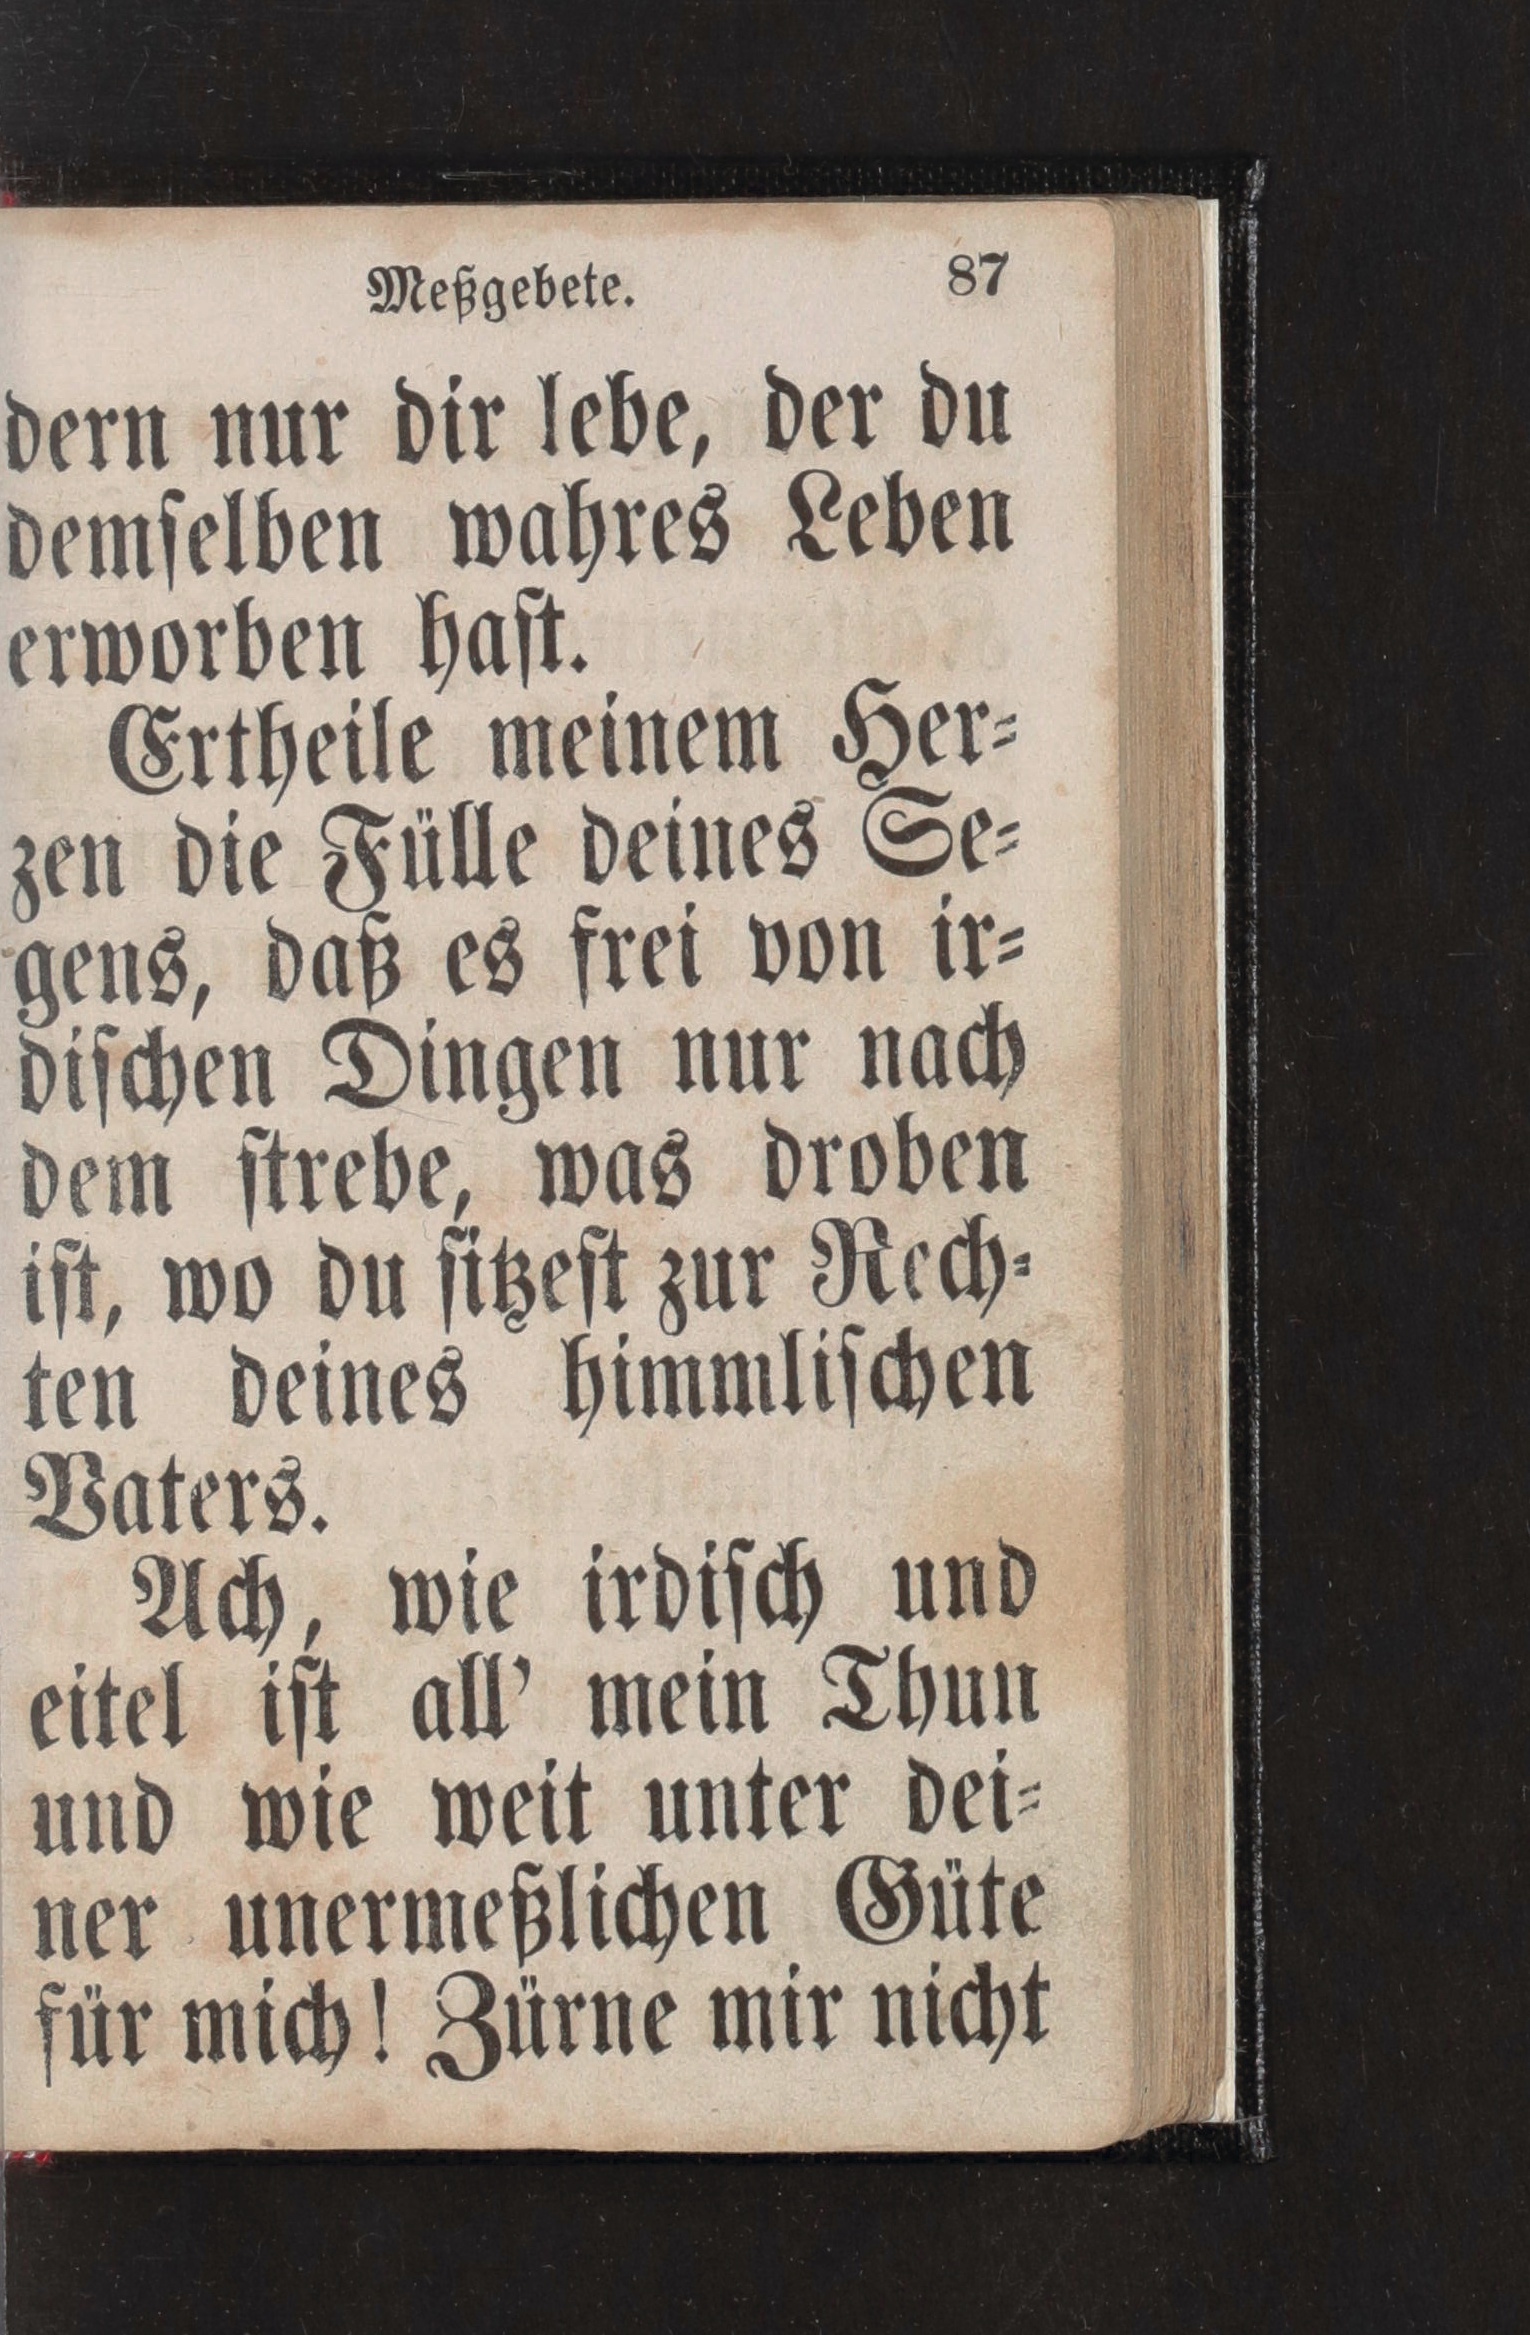 Meßgebete. 87
dern nur dir lebe, der du
demſelben wahres Leben
erworben haſt.
Ertheile meinem Her⸗
zen die Fülle deines Se⸗
gens, daß es frei von ir⸗
diſchen Dingen nur nach
dem ſtrebe, was droben
iſt, wo du ſitzeſt zur Rech⸗
ten deines himmliſchen
Vaters.
Ach, wie irdiſch und
eitel iſt all’ mein Thun
und wie weit unter dei⸗
ner unermeßlichen Güte
für mich! Zürne mir nicht